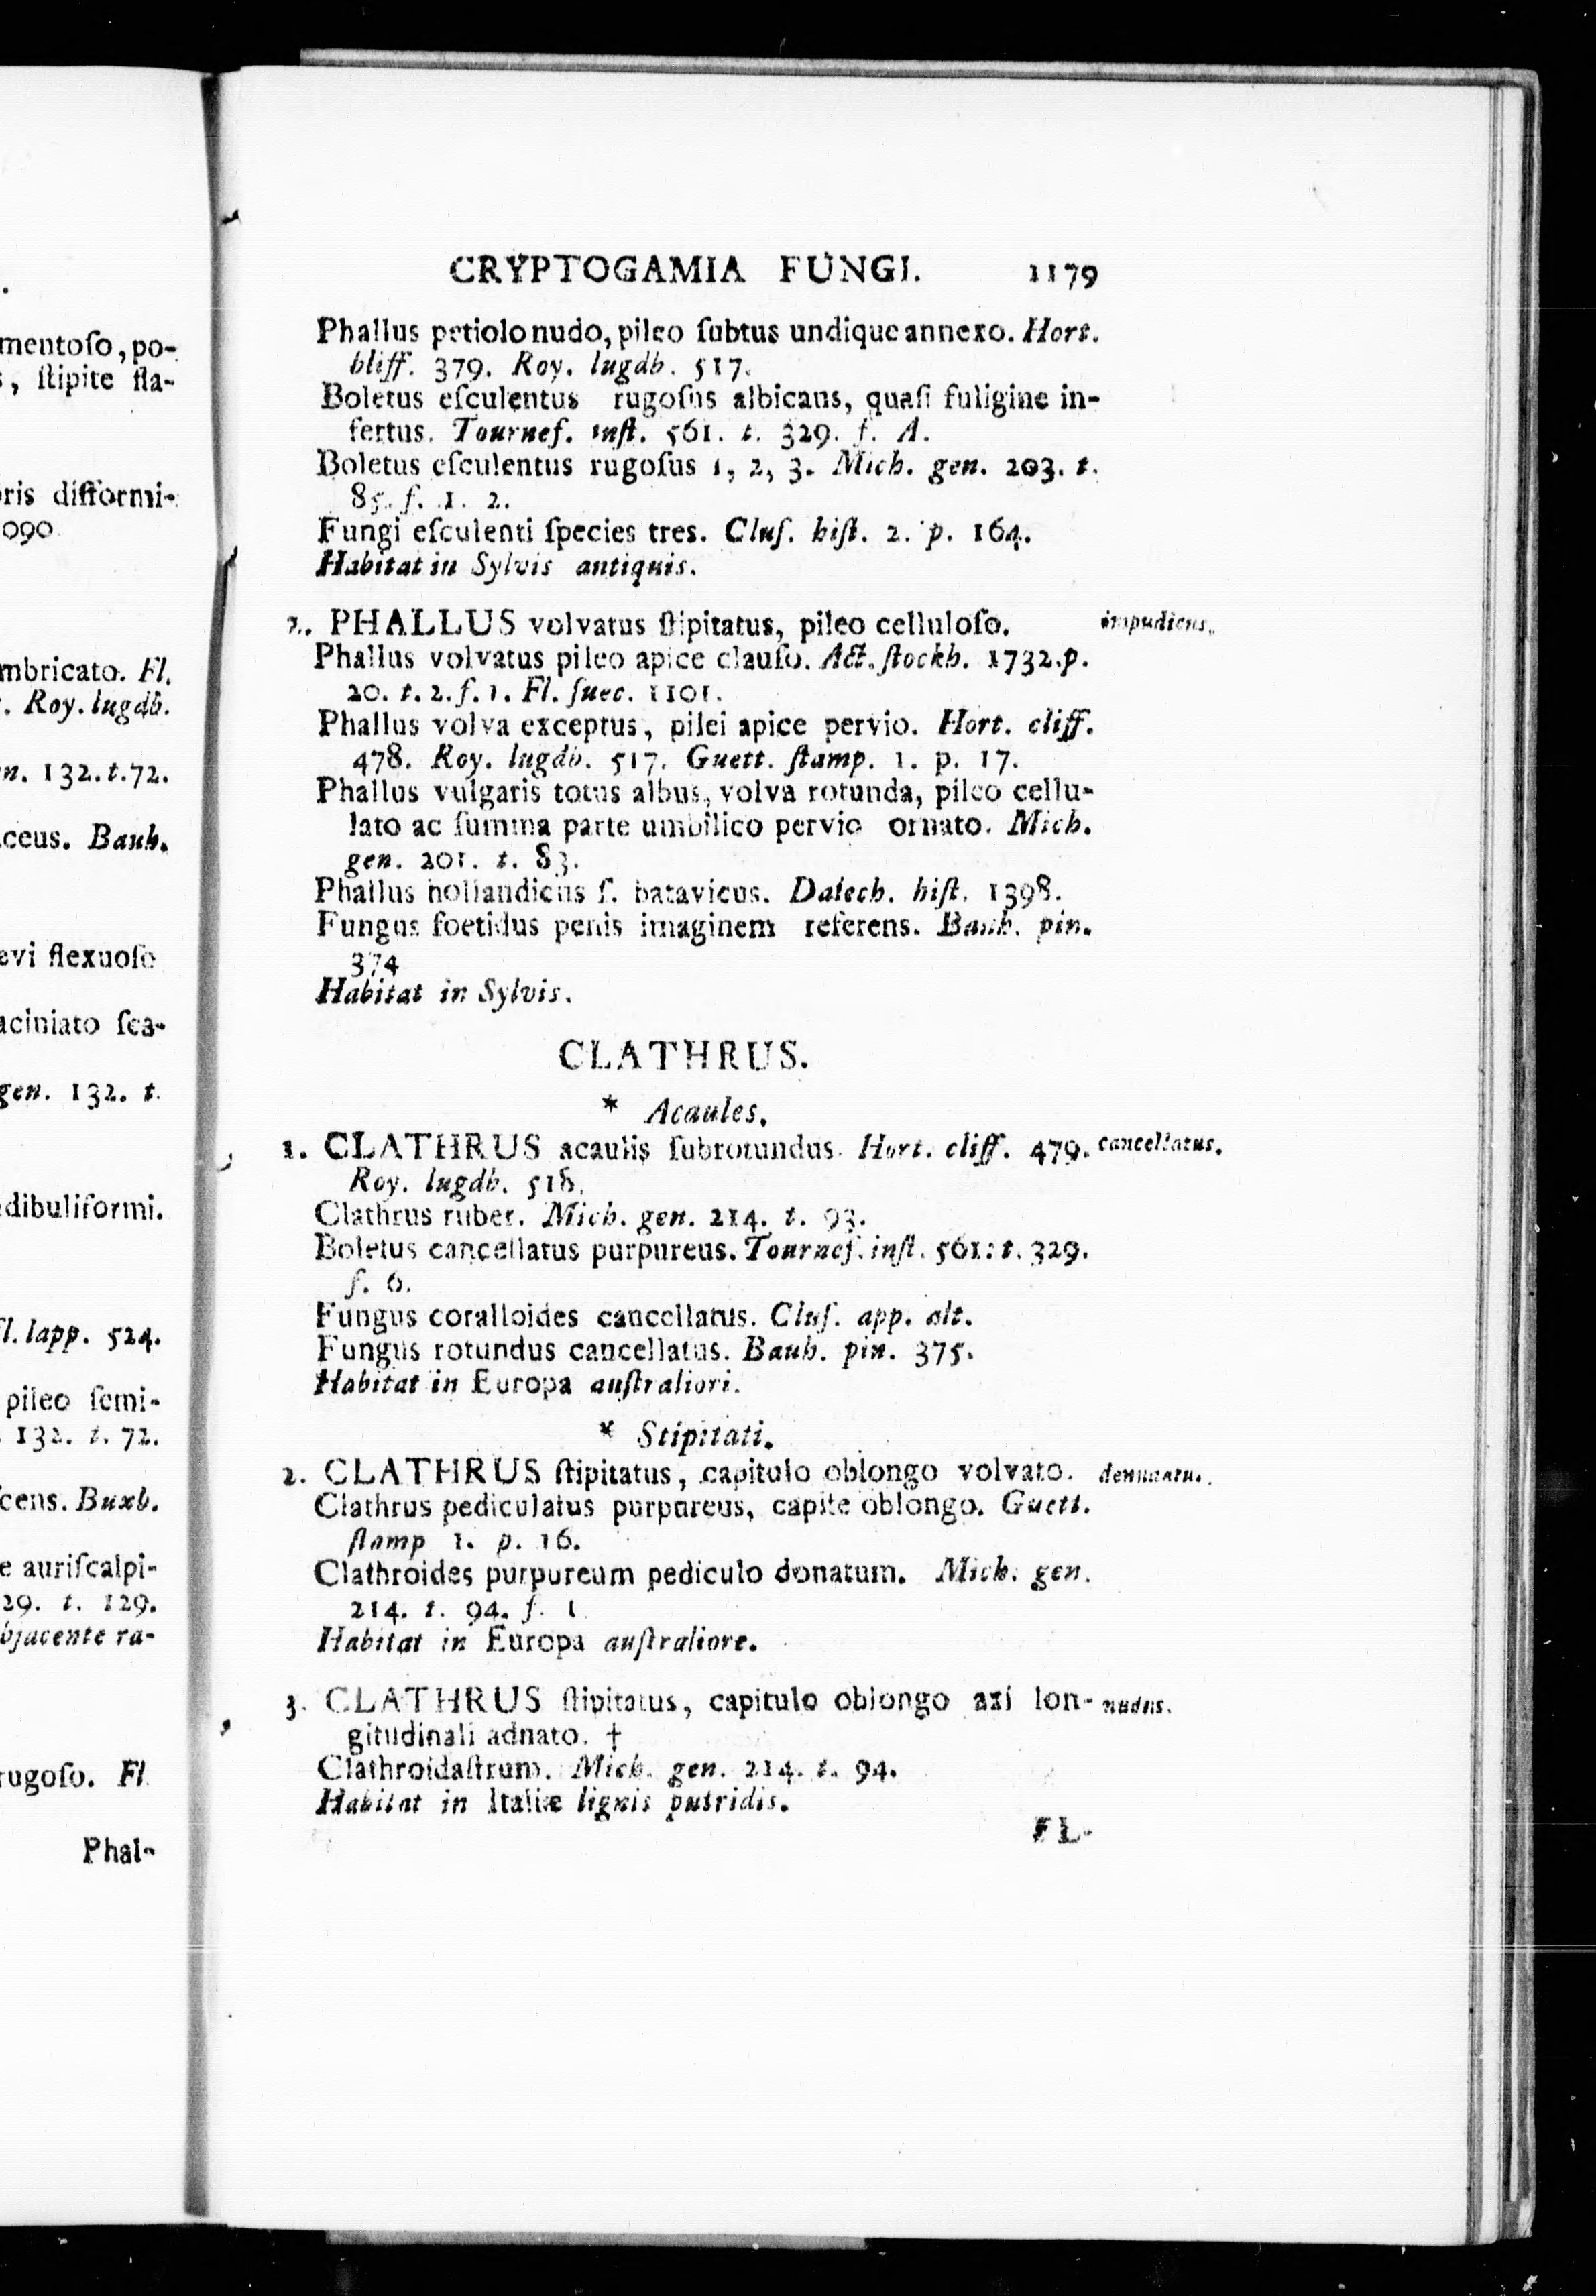 .
mentoſo, po-
, ſtipite fla-
ris difformi-
090
mbricato. Fl.
. Roy. lugdb.
n. 132. t. 72.
ceus. Bauh.
evi flexuoſo
aciniato ſca-
gen. 132. t.
dibuliformi.
l. lapp. 524.
pileo ſemi-
132. t. 72.
ſcens. Buxb.
e auriſcalpi-
29. t. 129.
bjacente ra-
rugoſo. Fl
Phal-
CRYPTOGAMIA FUNGI. 1179
Phallus petiolo nudo, pileo ſubtus undique annexo. Hort.
bliff. 379. Roy. lugdb. 517.
Boletus eſculentus rugoſus albicans, quaſi fuligine in-
fertus. Tournef. inſt. 561. t. 329. f. A.
Boletus eſculentus rugoſus 1, 2, 3. Mich. gen. 203. t.
85. f. 1. 2.
Fungi eſculenti ſpecies tres. Cluſ. hiſt. 2. p. 164.
Habitat in Sylvis antiquis.
2. PHALLUS volvatus ſtipitatus, pileo celluloſo. impudicus.
Phallus volvatus pileo apice clauſo. Act. ſtockh. 1732. p.
20. t. 2. f. 1. Fl. ſuec. 1101.
Phallus volva exceptus, pilei apice pervio. Hort. cliff.
478. Roy. lugdb. 517. Guett. ſtamp. 1. p. 17.
Phallus vulgaris totus albus, volva rotunda, pileo cellu-
lato ac ſumma parte umbilico pervio ornato. Mich.
gen. 201. t. 83.
Phallus hollandicus ſ. batavicus. Dalech. hiſt. 1398.
Fungus foetidus penis imaginem referens. Bauh. pin.
374
Habitat in Sylvis.
CLATHRUS.
* Acaules.
1. CLATHRUS acaulis ſubrotundus. Hort. cliff. 479. cancellatus.
Roy. lugdb. 518.
Clathrus ruber. Mich. gen. 214. t. 93.
Boletus cancellatus purpureus. Tournef. inſt. 561: t. 329.
f. 6.
Fungus coralloides cancellatus. Cluſ. app. alt.
Fungus rotundus cancellatus. Bauh. pin. 375.
Habitat in Europa auſtraliori.
* Stipitati.
2. CLATHRUS ſtipitatus, capitulo oblongo volvato.
Clathrus pediculatus purpureus, capite oblongo. Guett.
ſtamp 1. p. 16.
Clathroides purpureum pediculo donatum. Mich. gen.
214. t. 94. f. 1
Habitat in Europa auſtraliore.
3. CLATHRUS ſtipitatus, capitulo oblongo axi lon- nudus.
gitudinali adnato. †
Clathroidaſtrum. Mich. gen. 214. t. 94.
Habitat in Italiæ lignis putridis.
FL-